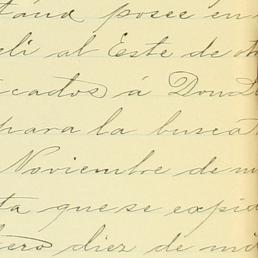 posee en
al Este de
cados á Don
para la busca
Noviembre de
ta que se expid
diez de mil